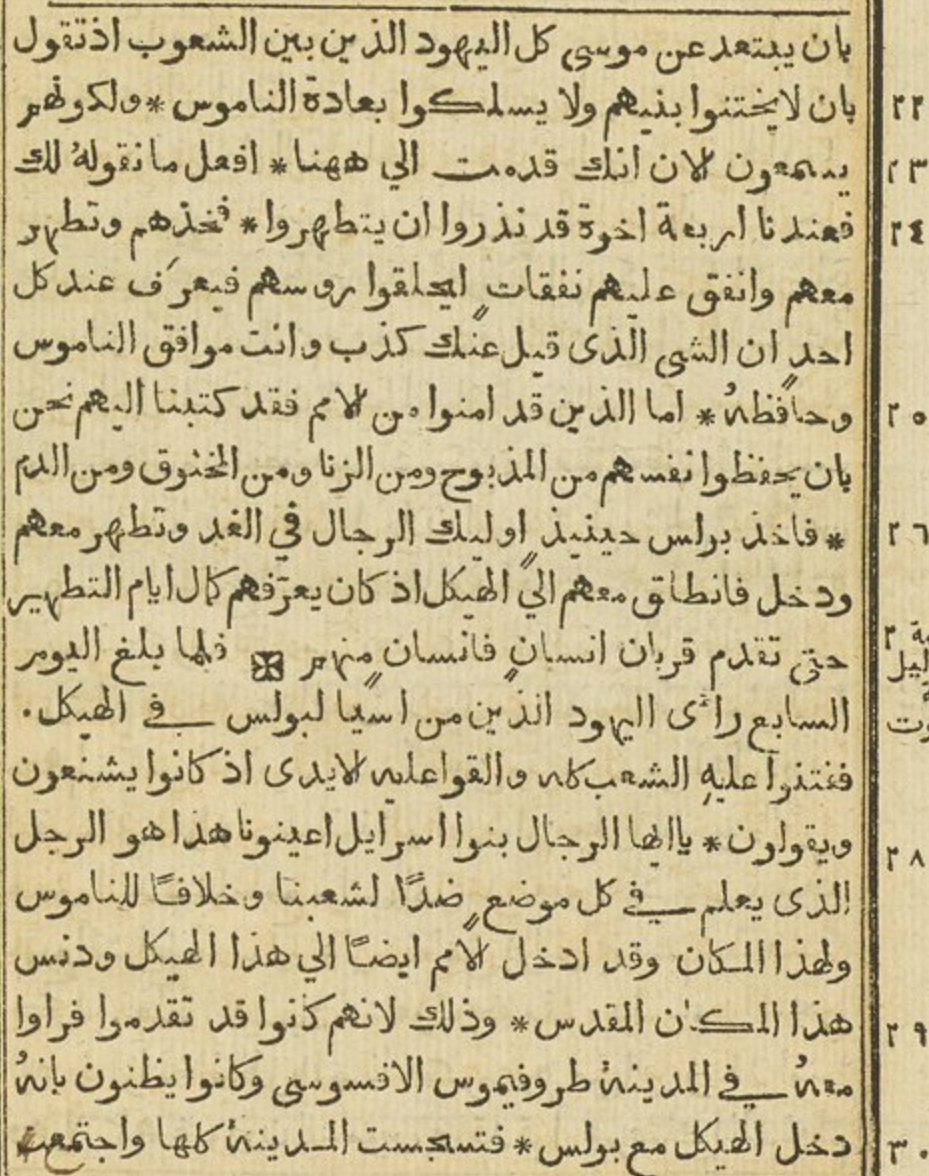 بان يبتعد عن موسي كل اليهود الذين بين الشعوب اذ تقول
٢٢ بان لا يختنوا بنيهم ولا يسلكوا بعادة الناموس * ولكونهم
٢٣ يسمعون الان انك قدمت الي ههنا * افعل ما نقوله لك
٢٤ فعندنا اربعة اخوة قد نذروا ان يتطهروا * فخذهم وتطهر
معهم وانفق عليهم نفقات ليحلقوا روسهم فيعرَف عند كل
احدٍ ان الشي الذى قيل عنك كذب وانت موافق الناموس
٢٥ وحافظهُ * اما الذين قد امنوا من الامم فقد كتبنا اليهم نحن
بان يحفظوا نفسهم من المذبوح ومن الزنا ومن المخنوق ومن الدم
٢٦ * فاخذ بولس حينيذٍ اوليك الرجال في الغد وتطهر معهم
ودخل فانطلق معهم الي الهيكل اذ كان يعرّفهم كمال ايام التطهير
حتي تقدم قربان انسانٍ فانسانٍ منهم ✠ فلما بلغ اليوم
السابع راَى اليهود الذين من اسيا لبولس في الهيكل.
ففتنوا عليهِ الشعب كله والقوا عليه الايدى اذ كانوا يشنعون
٢٨ ويقولون * يا ايها الرجال بنوا اسرايل اعينونا هذا هو الرجل
الذى يعلم في كل موضعٍ ضدًا لشعبنا وخلافًا للناموس
ولهذا المكان وقد ادخل الامم ايضًا الي هذا الهيكل ودنس
٢٩ هذا المكان المقدس * وذلك لانهم كانوا قد تقدموا فراوا
معهُ في المدينة طروفيموس الافسوسي وكانوا يظنون بانهُ
٣٠ دخل الهيكل مع بولس * فتسجست المدينة كلها واجتمعت